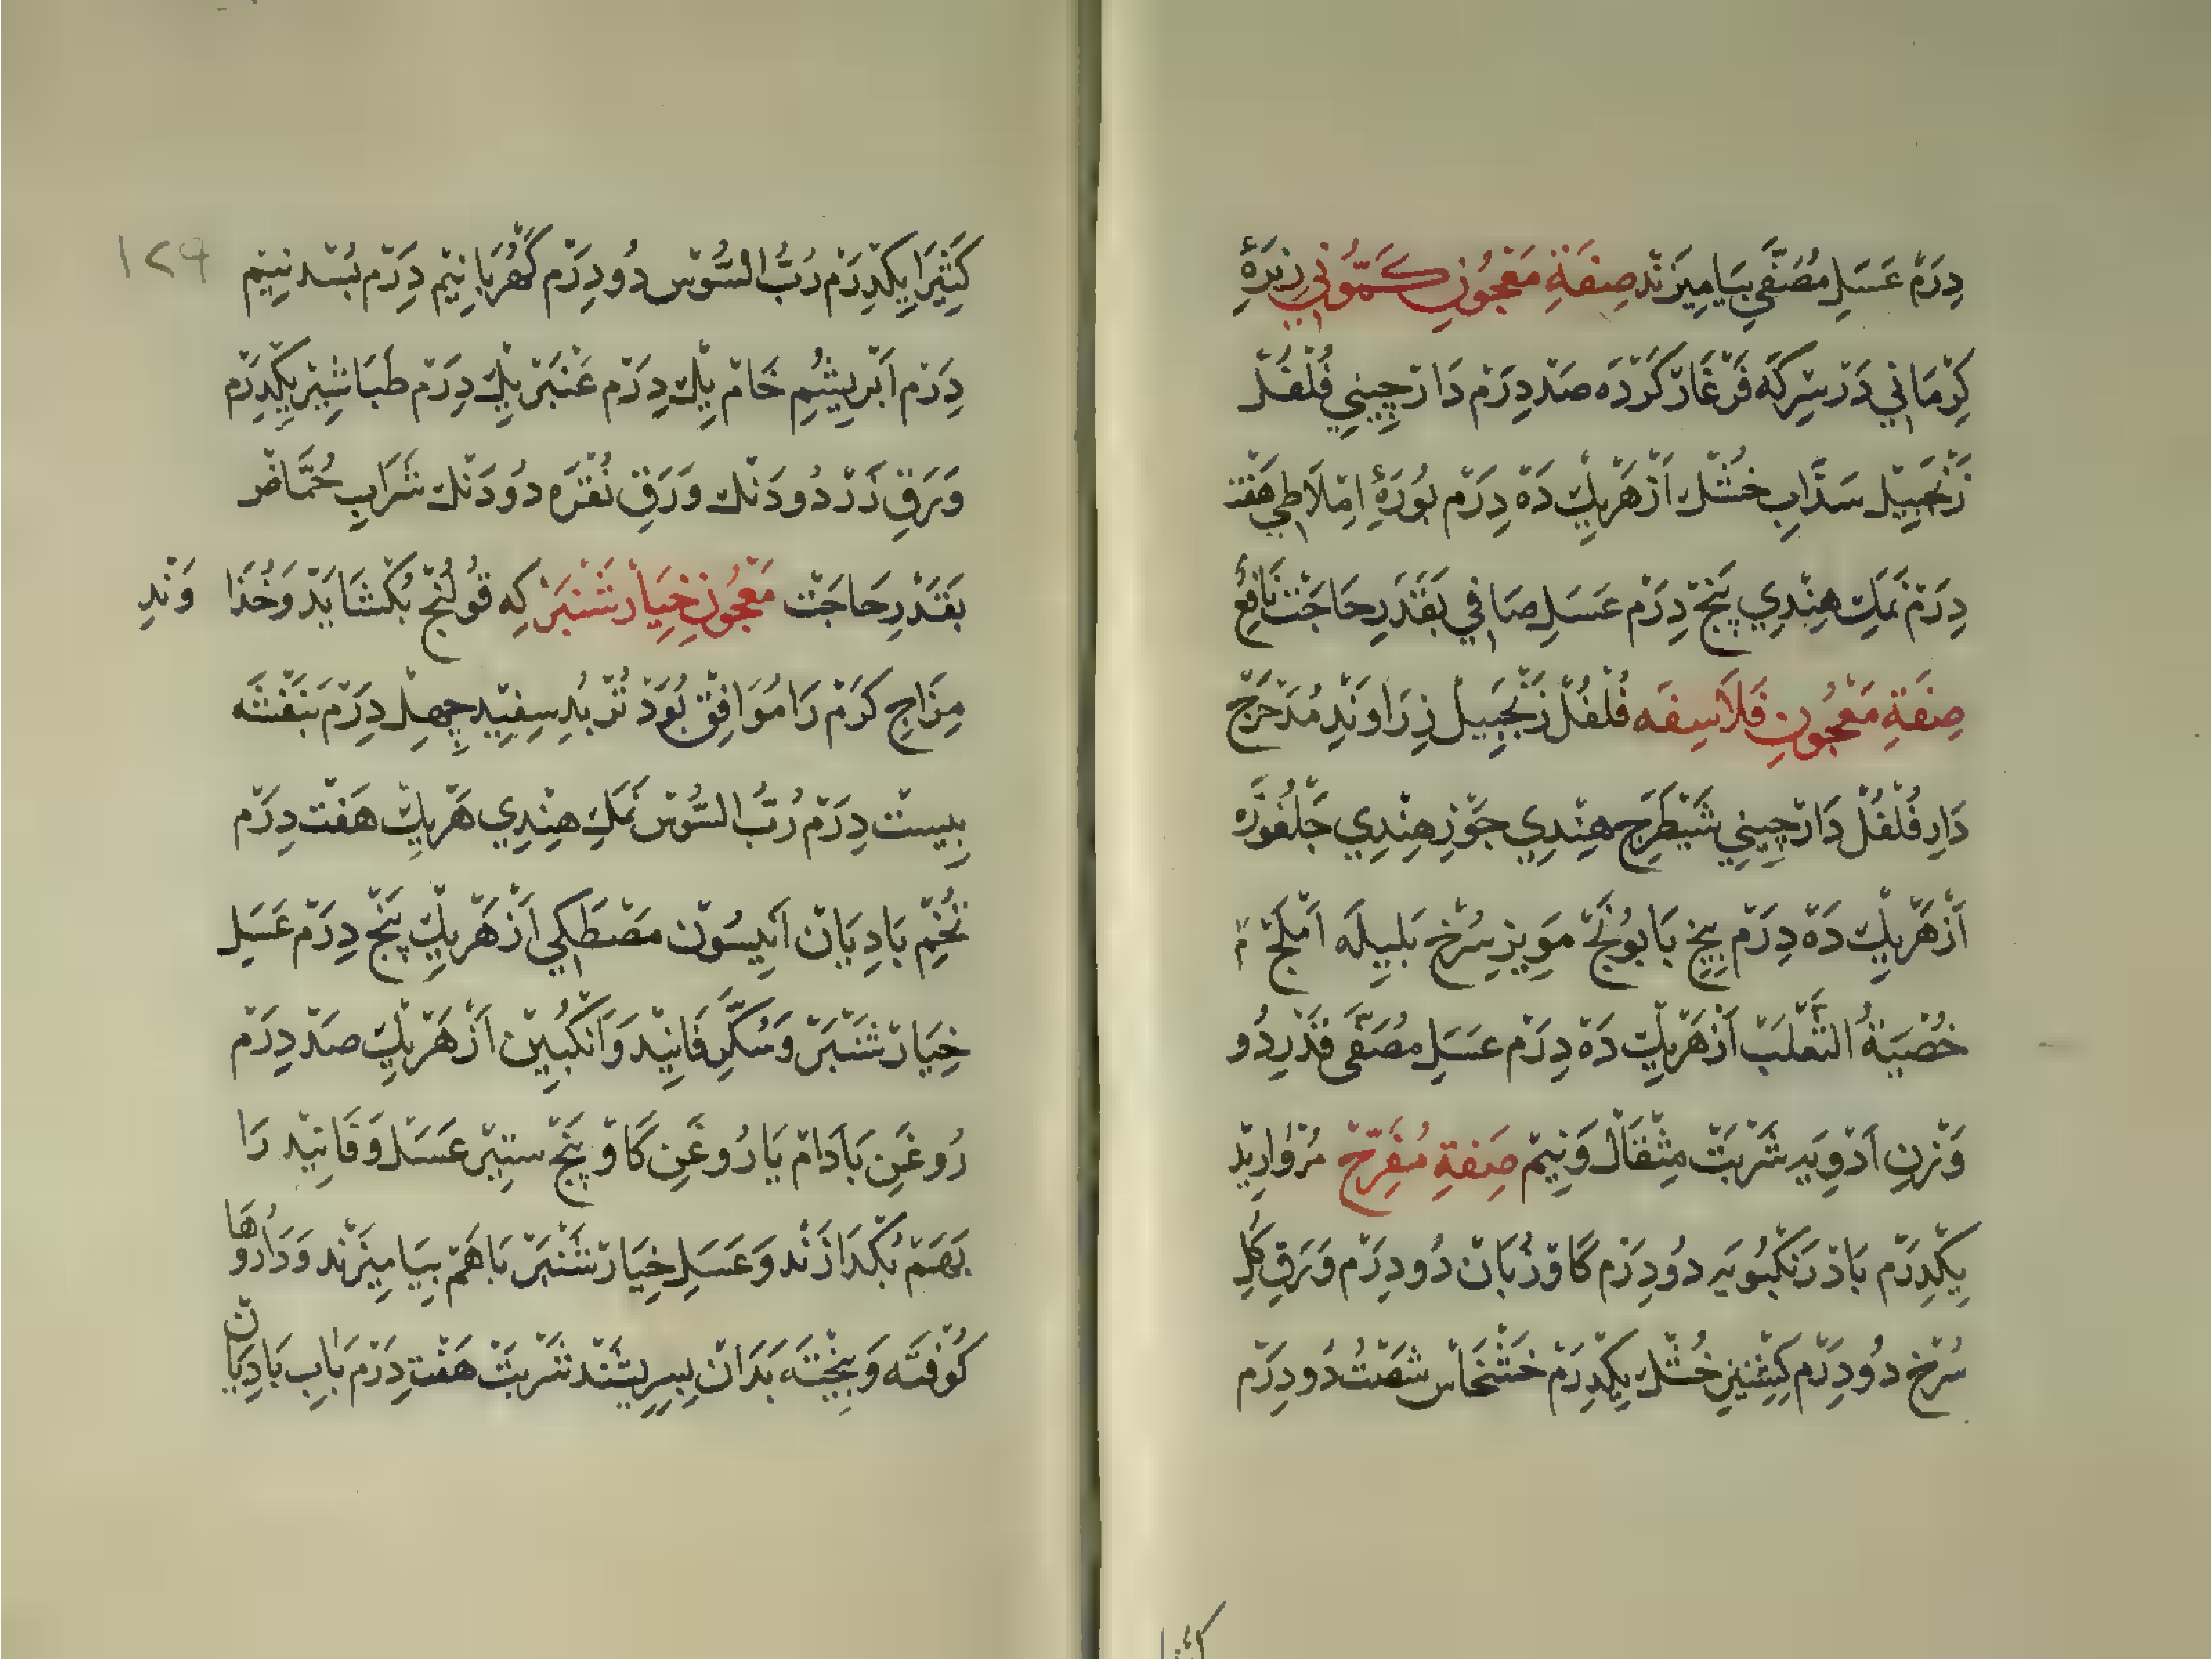 دِرَمْ عَسَلِ مُصَفَّي بِيَامِيزَنْد صِفَةِ مَعْجُونِ كَمُّونِي زِيرَهٔ
كِرْمَانِي دَرْ سِرْكَه فَرْغَارْ كَرْدَه صَدْ دِرَمْ دَارْچِينِي فُلْفُلْ
زَنْجَبِيل سَدَّابِ خُشْك اَزْ هَرْيِكْ دَهْ دِرَمْ بُورَهٔ اِمْلَاطِي هَفْت
دِرَمْ نَمَكِ هِنْدِي پَنْجْ دِرَمْ عَسَلِ صَافِي بَقَدَرِ حَاجَتْ نَافِعْ
صِفَةِ مَعْجُونِ فَلَاسِفَه فُلْفُلْ زَنْجَبِيلْ زِرَاوَنْدِ مُدَحْرَجْ
دَارِ فُلْفُلْ دَارْچِينِي شَيْطَرَجِ هِنْدِي جَوْزِ هِنْدِي جَلْغُوزَه
اَزْ هَرْيِكْ دَهْ دِرَمْ بِيخِ بَابُونَجْ مَوِيزِ سُرْخ بَلِيلَه اَمْلَجْ
خُصْيَةُ الثَّعْلَبْ اَزْ هَرْيِكْ دَهْ دِرَمْ عَسَلِ مُصَفَّي قَدْرِ دُو
وَزْنِ اَدْوِيَه شَرْبَتْ مِثْقَالْ وَنِيمْ صِفَةِ مُفَرِّحْ مُرْوَارِيدْ
يِكْدِرَمْ بَادْرَنْكْبُويَه دُو دِرَمْ گَاوْزُبَانْ دُو دِرَمْ وَرَقِ گُلِ
سُرْخ دُو دِرَمْ كِشْنِيزِ خُشْك يِكْدِرَمْ خَشْخَاشْ شَصْتْ دُو دِرَمْ
كَثِيرَا يِكْدِرَمْ رُبُّ السُّوسْ دُو دِرَمْ كَهْرُبَا نِيمْ دِرَمْ بُسَّدْ نِيمْ
دِرَمْ اَبْرِيشُمِ خَامْ يِكْ دِرَمْ عَنْبَرْ يِكْ دِرَمْ طَبَاشِيرْ يِكْدِرَمْ
وَرَقِ زَرْ دُو دَنْك وَرَقِ نُقْرَه دُو دَنْك شَرَابِ حُمَّاضْ
بَقَدْرِ حَاجَتْ مَعْجُونِ خِيَارْشَنْبَرْ كِه قُولَنْجْ بُكْشَايَدْ وَخُذَاوَنْدِ
مِزَاجِ كَرْمْ رَا مُوَافِقْ بُوَدْ تُرْبُدِ سِفِيدْ چِهِلْ دِرَمْ بَنَفْشَه
بِيسْت دِرَمْ رُبُّ السُّوسْ نَمَكِ هِنْدِي هَرْيِكْ هَفْت دِرَمْ
تُخْمِ بَادِيَانْ اَنِيسُونْ مَصْطَكِي اَزْ هَرْيِكْ پَنْجْ دِرَمْ عَسَلِ
خِيَارْشَنْبَرْ وَسُكَّرِ فَانِيدْ وَاَنْكَبِينْ اَزْ هَرْيِكْ صَدْ دِرَمْ
رُوغَنِ بَادَامْ يَا رُوغَنِ گَاوْ پَنْجْ سِتِيرْ عَسَلْ وَفَانِيدْ رَا
بَهَمْ بُكْدَازَنْد وَعَسَلِ خِيَارْشَنْبَرْ بَاهَمْ بِيَامِيزَنْد وَدَارُوهَا
كُوفْتَه وَبِيخْتَه بَدَانْ بِسِرِيشَنْد شَرْبَتْ هَفْت دِرَمْ بَابِ بَادِيَانْ
۱۲۹